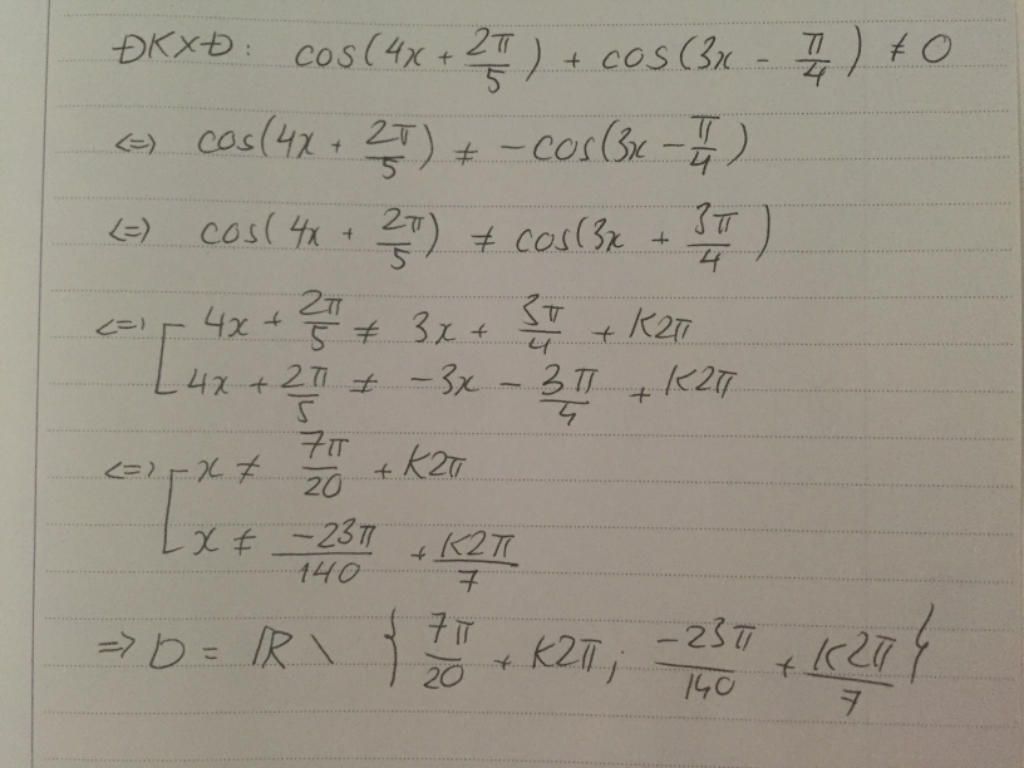 ĐKXĐ: cos(4x + 2π/5) + cos(3x - π/4) ≠ 0
<=> cos(4x + 2π/5) ≠ -cos(3x - π/4)
<=> cos(4x + 2π/5) ≠ cos(3x + 3π/4)
<=> [ 4x + 2π/5 ≠ 3x + 3π/4 + K2π
4x + 2π/5 ≠ -3x - 3π/4 + K2π
<=> [ x ≠ 7π/20 + K2π
x ≠ -23π/140 + K2π/7
=> D = R \ { 7π/20 + K2π; -23π/140 + K2π/7 }